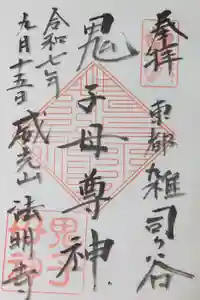 奉拝
東都雑司ヶ谷
鬼子母尊神
令和七年
九月十五日
威光山法明寺